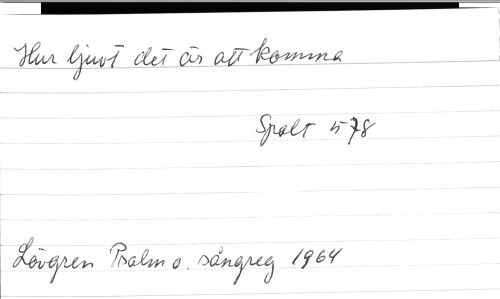 Hur ljuvt det är att komma
Spalt 578
Lövgren Psalm o. sångreg 1964